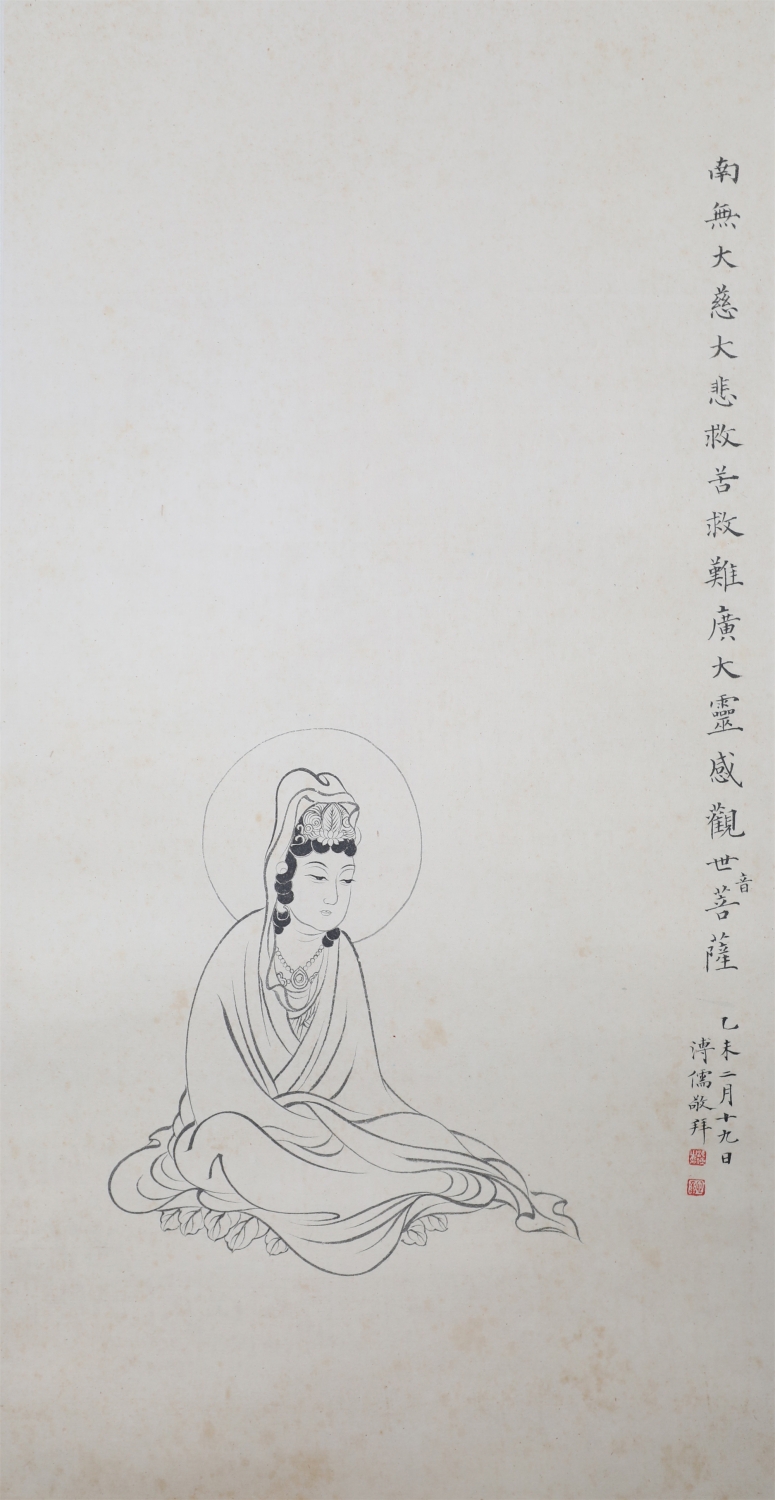 南無大慈大悲救苦救難廣大靈感觀世音菩薩
乙未二月十九日
溥儒敬拜